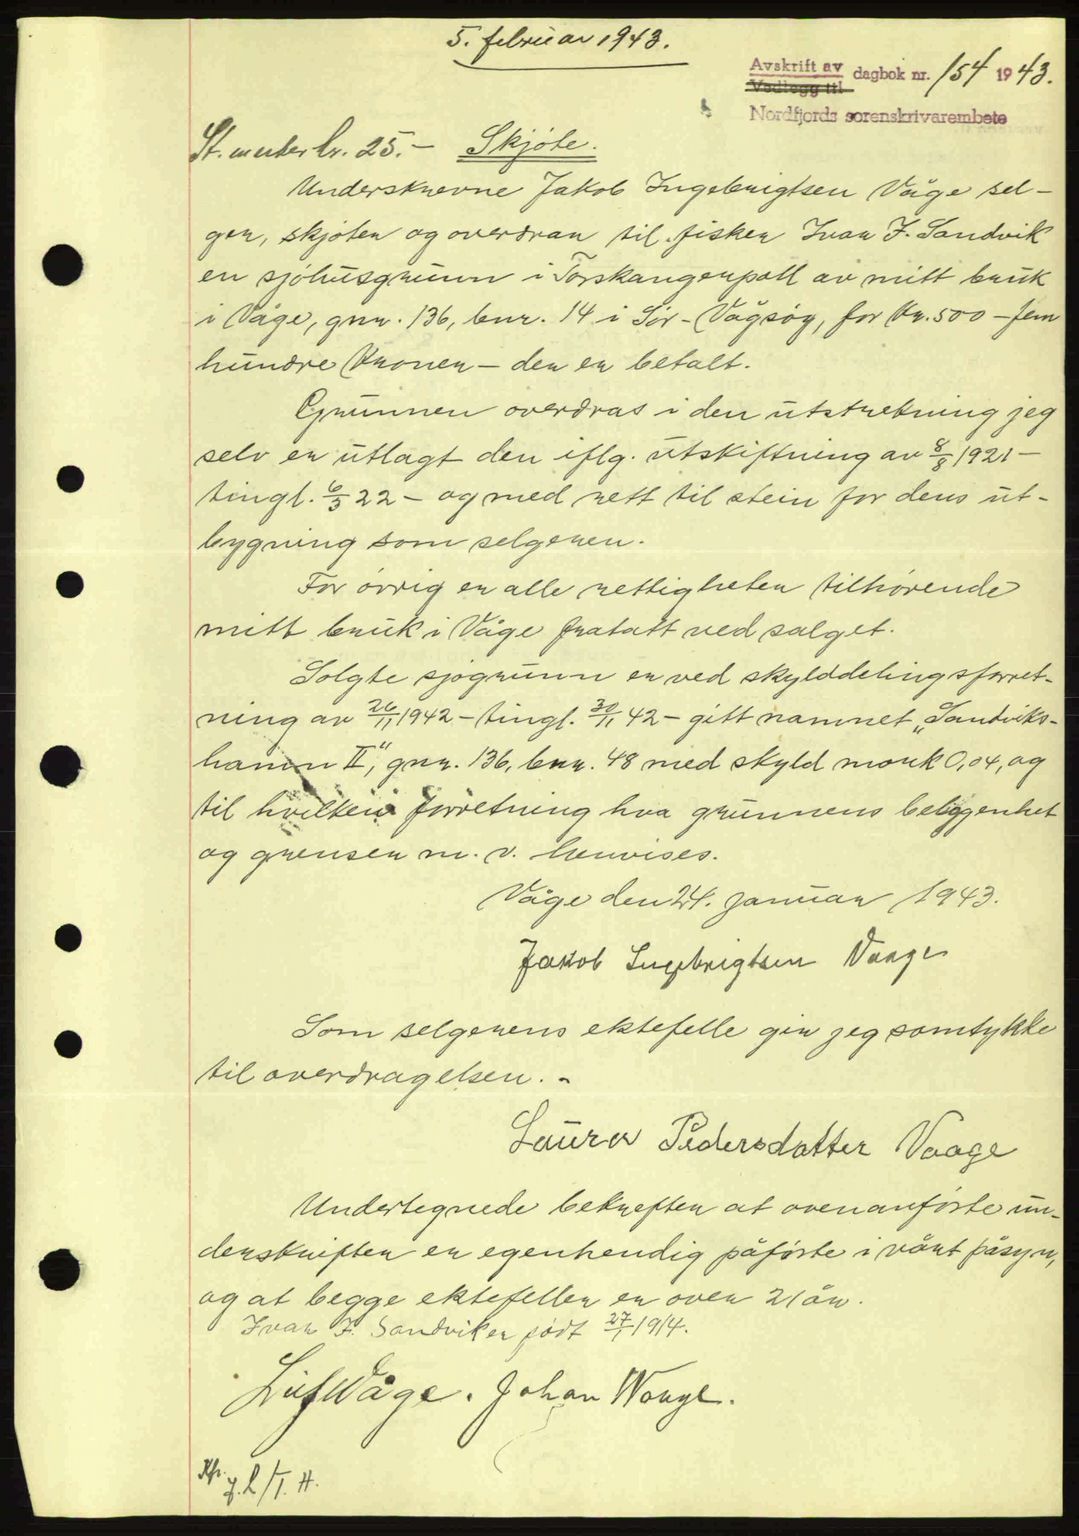 5. februar 1943.
Avskrift av
Vedlegg til
dagbok nr. 154 1943.
Nordfjords sorenskrivarembete
St. merker kr. 25.- Skjøte.
Underskrevne Jakob Ingebrigtsen Våge sel-
ger, skjøter og overdrar til fisker Ivar J. Sandvik
en sjøhusgrunn i Torskangerpoll av mitt bruk
i Våge, gnr. 136, bnr. 14 i Sør-Vågsøy, for kr. 500 - fem
hundre kroner - der er betalt.
Grunnen overdras i den utstrekning jeg
selv er utlagt den iflg. utskiftning av 8/8 1921 -
tingl. 6/3 22 - og med rett til stein for dens ut-
bygning som selgeren.
For øvrig er alle rettigheter tilhørende
mitt bruk i Våge fratatt ved salget.
Solgte sjøgrunn er ved skylddelingsforret-
ning av 26/11 1942 - tingl. 30/11 42 - gitt namnet „Sandviks-
hamn II", gnr. 136, bnr. 48 med skyld mork 0,04, og
til hvilken forretning hva grunnens beliggenhet
og grenser m. v. henvises.
Våge den 24. januar 1943.
Jakob Ingebrigtsen Vaage
Som selgerens ektefelle gir jeg samtykke
til overdragelsen. -
Laura Pedersdatter Vaage
Undertegnede bekrefter at ovenanførte un-
derskrifter er egenhendig påførte i vårt påsyn,
og at begge ektefeller er over 21 år.
Ivar J. Sandvik er født 27/1 1914.
Leif Våge. Johan Waage.
Kfr.
J. L/T. H.